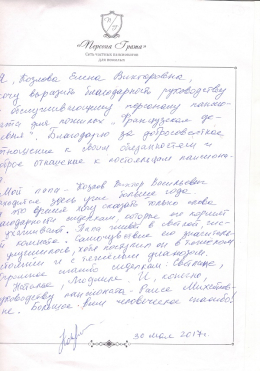 «Персона Грата»
Сеть частных пансионатов
для пожилых
Я, Козлова Елена Викторовна,
хочу выразить благодарность руководству
и обслуживающему персоналу пансио-
ната для пожилых "Французская де-
ревня". Благодарю за добросовестное
отношение к своим обязанностям и
доброе отношение к постояльцам пансиона-
та.
Мой папа - Козлов Виктор Васильевич
находился здесь уже больше года
и это время могу сказать только слова
благодарности сиделкам, которые его кормят
и ухаживают. Папа живет в светлой, чис-
той комнате. Самочувствие его значитель-
но улучшилось, хотя поступил он в тяжелом
состоянии и с тяжелым диагнозом.
Огромное спасибо сиделкам: Светлане,
Наталье, Людмиле. И, конечно,
руководителю пансионата - Раисе Михайлов-
не. Большое Вам человеческое спасибо!
30 июля 2017 г.